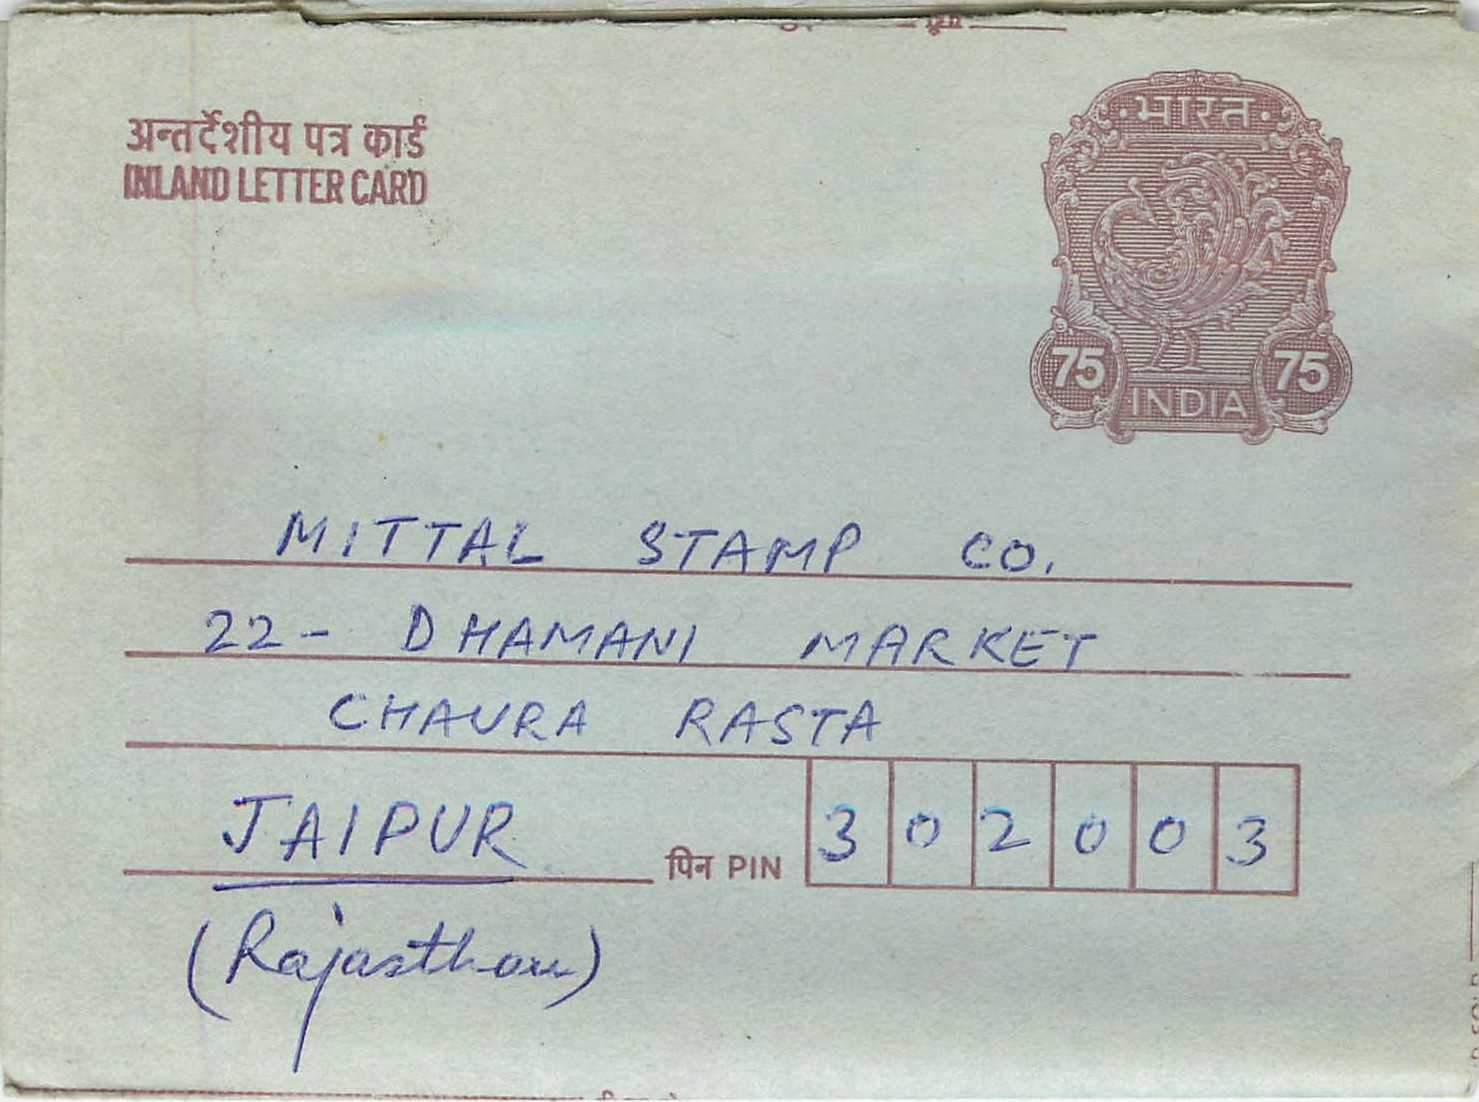 अन्तर्देशीय पत्र कार्ड
INLAND LETTER CARD
भारत
75 75
INDIA
MITTAL STAMP CO.
22- DHAMANI MARKET
CHAURA RASTA
JAIPUR पिन PIN 302003
(Rajasthan)